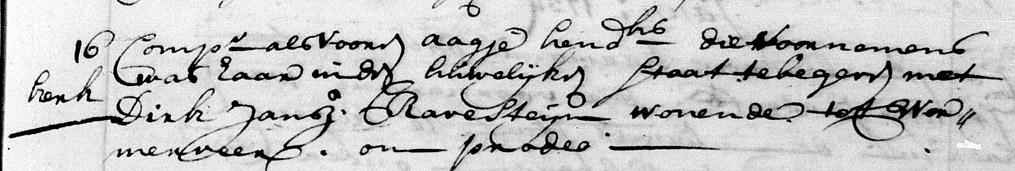 16 Compt als vooren aagje hendks die voornemens
was haar inden huwelijken staat te begeven met
kerk Dirk Jansz. Ravesteijn wonende tot Wor„
merveer. on pro deo